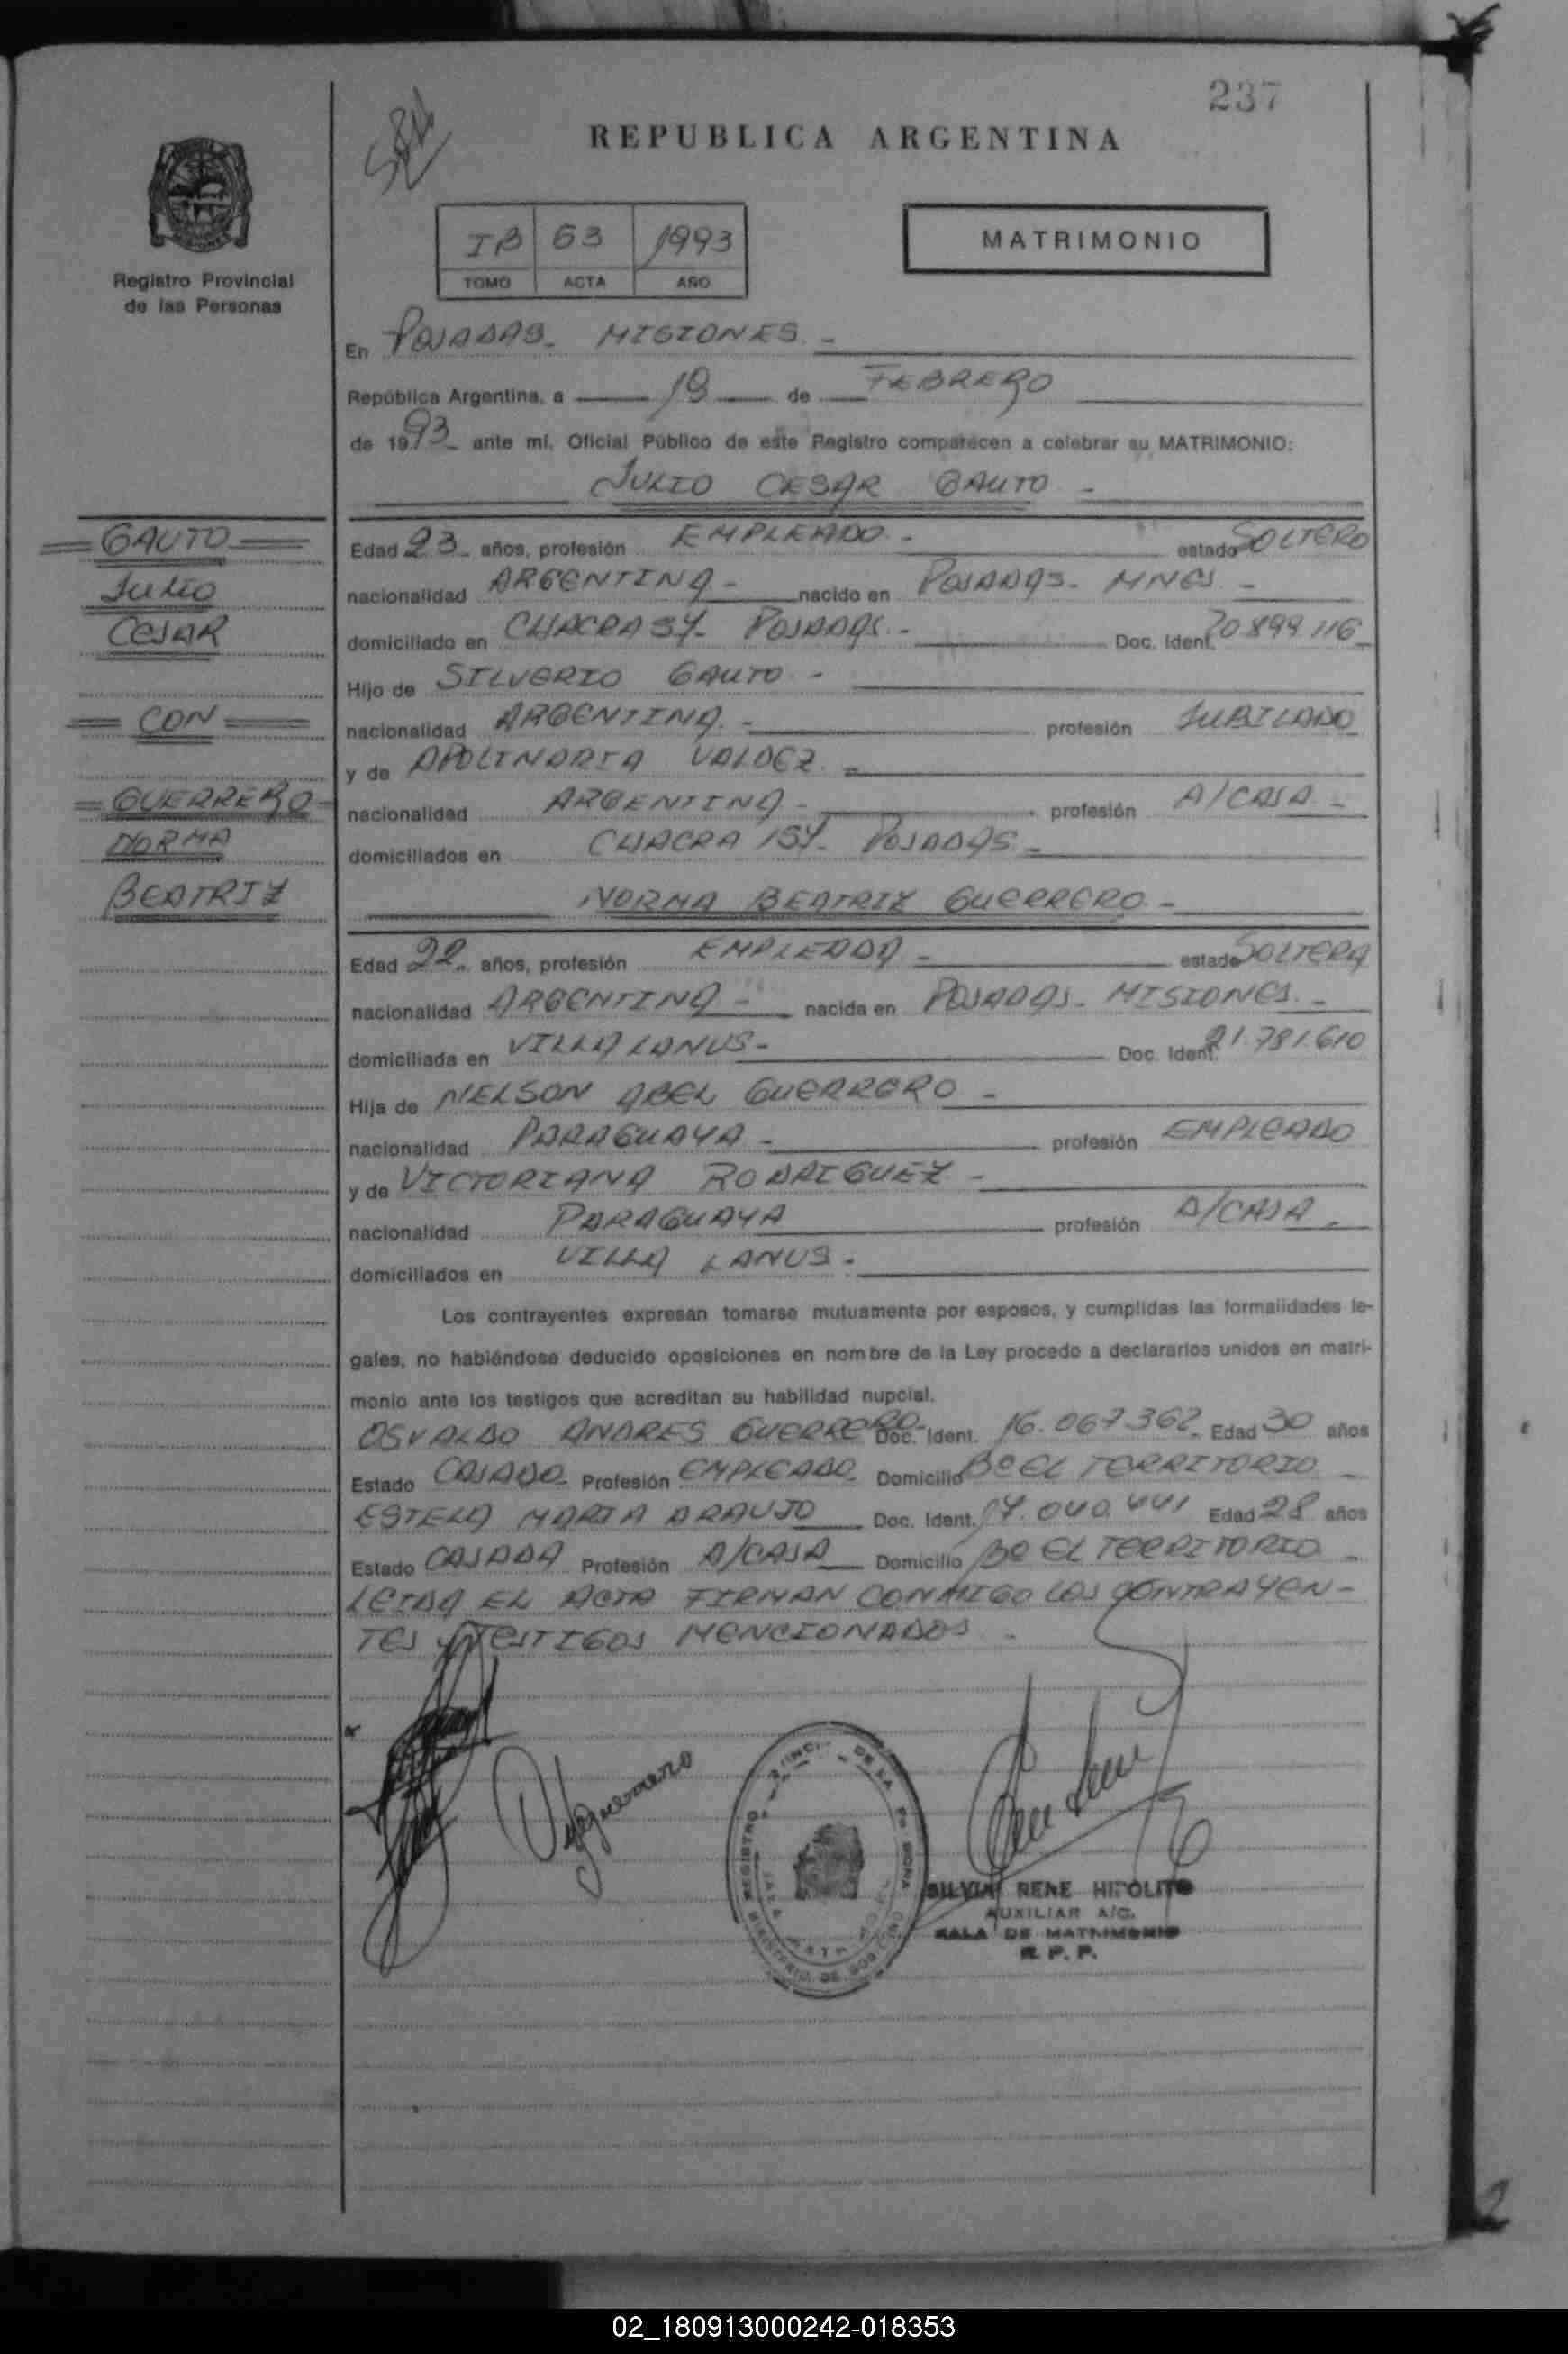 237
REPUBLICA ARGENTINA
Registro Provincial
de las Personas
IB 63 1993
TOMO ACTA AÑO
MATRIMONIO
En POSADAS - MISIONES -
República Argentina, a 19 de FEBRERO
de 1993 ante mí, Oficial Público de este Registro comparecen a celebrar su MATRIMONIO:
JULIO CESAR GAUTO -
GAUTO
JULIO
CESAR
CON
GUERRERO
NORMA
BEATRIZ
Edad 23 años, profesión EMPLEADO - estado SOLTERO
nacionalidad ARGENTINA - nacido en POSADAS - MNES -
domiciliado en CHACRA POSADAS - Doc. Ident. 20.899.116
Hijo de SILVERIO GAUTO -
nacionalidad ARGENTINA - profesión JUBILADO
y de APOLINARIA VALDEZ -
nacionalidad ARGENTINA - profesión A/CASA -
domiciliados en CHACRA POSADAS -
NORMA BEATRIZ GUERRERO -
Edad 22 años, profesión EMPLEADA - estado SOLTERA
nacionalidad ARGENTINA - nacida en POSADAS - MISIONES -
domiciliada en VILLA LANUS - Doc. Ident. 21.781.610
Hija de NELSON ABEL GUERRERO -
nacionalidad PARAGUAYA - profesión EMPLEADO
y de VICTORIANA RODRIGUEZ -
nacionalidad PARAGUAYA profesión A/CASA -
domiciliados en VILLA LANUS -
Los contrayentes expresan tomarse mutuamente por esposos, y cumplidas las formalidades le-
gales, no habiéndose deducido oposiciones en nombre de la Ley procedo a declararlos unidos en matri-
monio ante los testigos que acreditan su habilidad nupcial.
OSVALDO ANDRES GUERRERO - Doc. Ident. 16.067.362 Edad 30 años
Estado CASADO Profesión EMPLEADO Domicilio Bº EL TERRITORIO -
ESTELA MARIA ARAUJO Doc. Ident. 17.040.441 Edad 28 años
Estado CASADA Profesión A/CASA Domicilio Bº EL TERRITORIO -
LEIDA EL ACTA FIRMAN CONMIGO LOS CONTRAYEN-
TES Y TESTIGOS MENCIONADOS -
SILVIA RENE HIPOLITO
AUXILIAR A/C.
SALA DE MATRIMONIO
R. P. P.
02_180913000242-018353